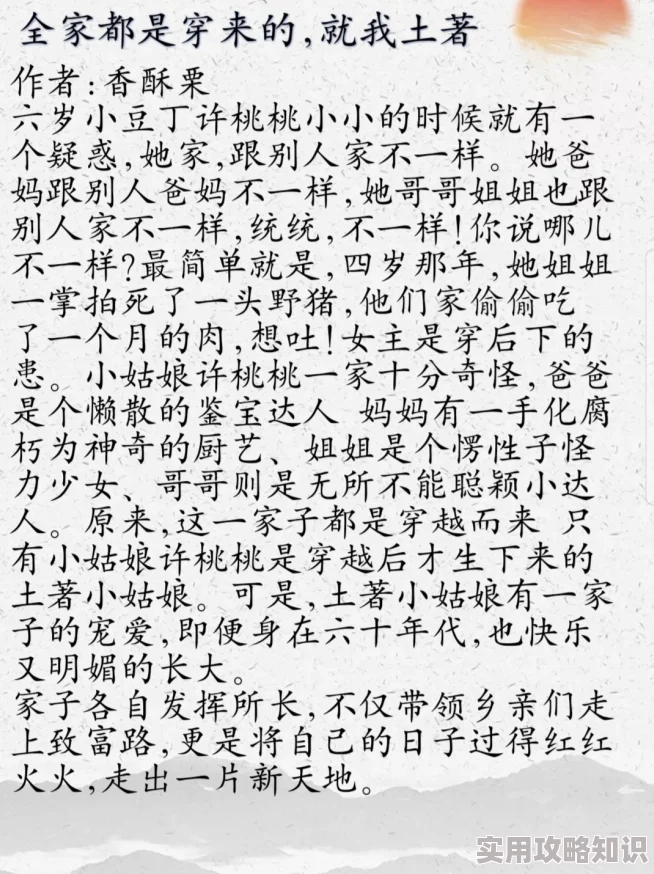 全家都是穿来的,就我土著
作者:香酥栗
六岁小豆丁许桃桃小小的时候就有一
个疑惑,她家,跟别人家不一样。她爸
妈跟别人爸妈不一样,她哥哥姐姐也跟
别人家不一样,统统,不一样!你说哪儿
不一样?最简单就是,四岁那年,她姐姐
一掌拍死了一头野猪,他们家偷偷吃
了一个月的肉,想吐!女主是穿后下的
患。小姑娘许桃桃一家十分奇怪,爸爸
是个懒散的鉴宝达人 妈妈有一手化腐
朽为神奇的厨艺、姐姐是个愣性子怪
力少女、哥哥则是无所不能聪颖小达
人。原来,这一家子都是穿越而来 只
有小姑娘许桃桃是穿越后才生下来的
土著小姑娘。可是,土著小姑娘有一家
子的宠爱,即便身在六十年代,也快乐
又明媚的长大。
家子各自发挥所长,不仅带领乡亲们走
上致富路,更是将自己的日子过得红红
火火,走出一片新天地。
实用攻略知识